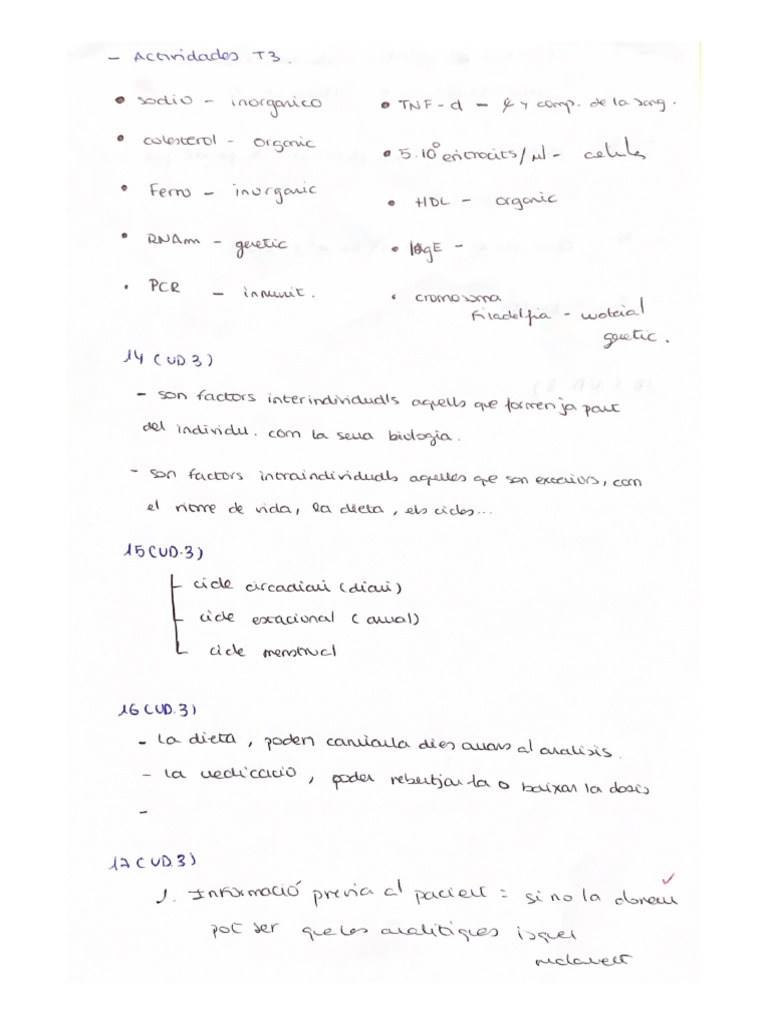 - Actividades T3.
• sodio - inorganico
• colesterol - organic
• Ferro - inorganic
• RNAm - genetic
• PCR - inmunit.
• TNF-α - y comp. de la sang.
• 5.10⁶ eritrocits/µl - celules
• HDL - organic
• IgE -
• cromosoma
Filadelfia - material
genetic.
14 (UD.3)
- son factors interindividuals aquells que formen ja part
del individu. com la seua biologia.
- son factors intraindividuals aquelles que son exteriors, com
el ritme de vida, la dieta, els cicles...
15 (UD.3)
cicle circadiari (diari)
cicle estacional (anual)
cicle menstrual
16 (UD.3)
- La dieta, poden canviarla dies avans al analisis.
- la medicació, poder rebutjar-la o baixar la dosis
-
17 (UD.3)
1. Informació previa al pacient = si no la donem
pot ser que les analitiques isquen
malament